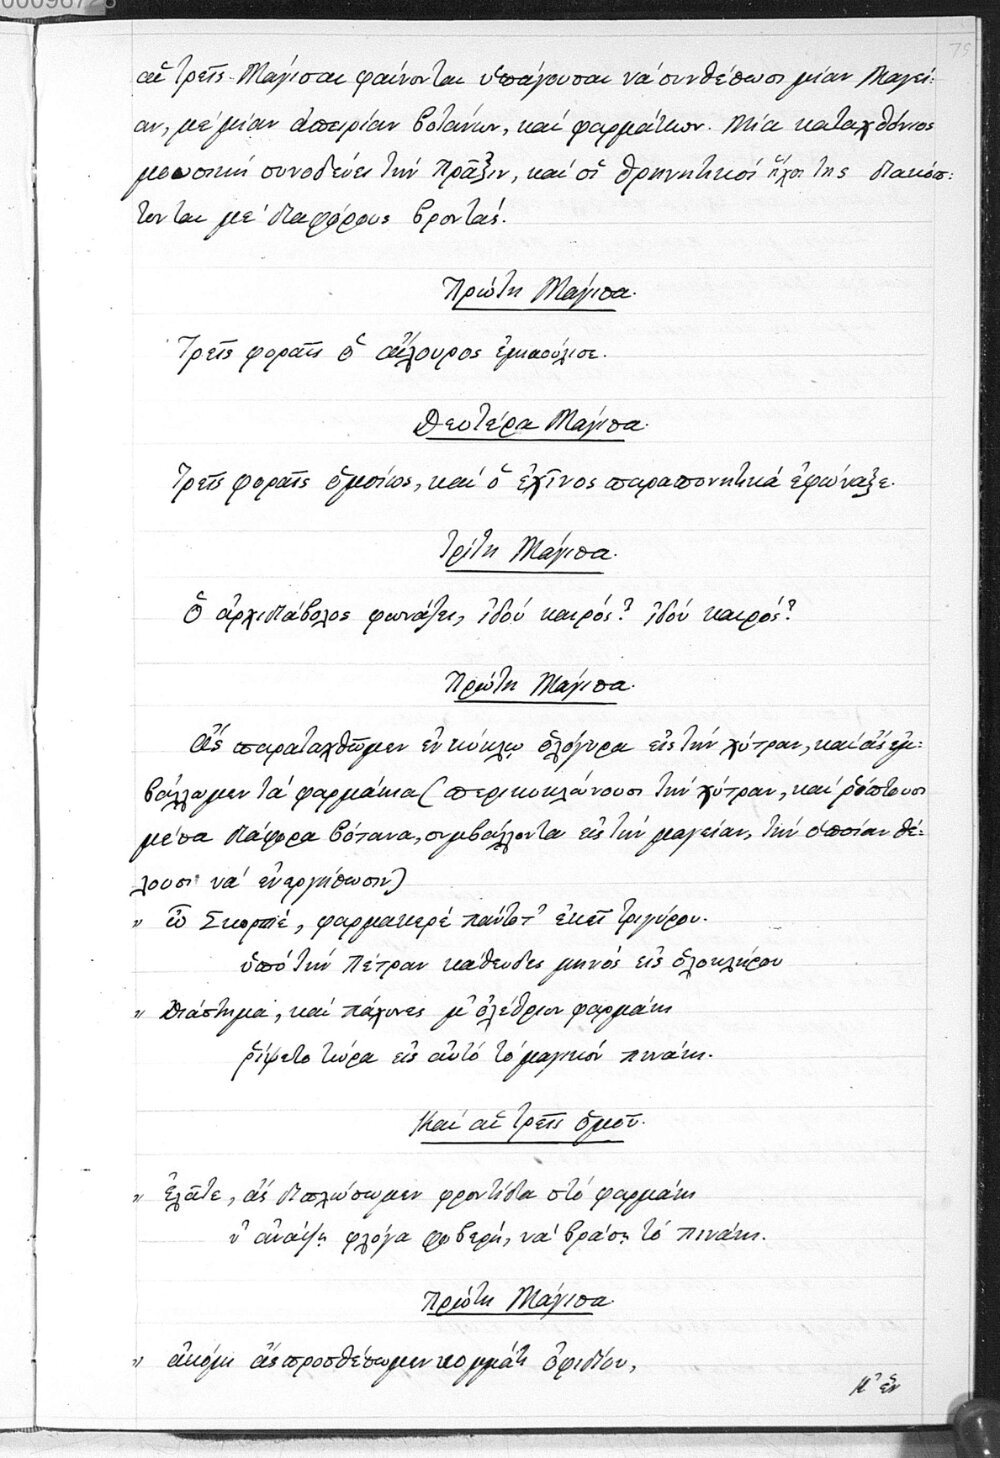 00096728
79
αἱ τρεῖς Μάγισαι φαίνονται ὑπάγουσαι νὰ συνθέσωσι μίαν Μαγεί-
αν, μὲ μίαν ἀπειρίαν βοτάνων, καὶ φαρμάκων. Μία καταχθόνιος
μουσικὴ συνοδεύει τὴν πρᾶξιν, καὶ οἱ θρηνητικοί ἦχοι της διακόπ-
τονται μὲ διαφόρους βροντάς.
Πρώτη Μάγισα.
Τρεῖς φοραῖς ὁ αἴλουρος ἐμιαούλισε.
Δευτέρα Μάγισα.
Τρεῖς φοραῖς ὁμοίως, καὶ ὁ ἐχῖνος παραπονητικά ἐφώναξε.
Τρίτη Μάγισα.
Ὁ ἀρχιδιάβολος φωνάζει, ἰδού καιρός! ἰδού καιρός!
Πρώτη Μάγισα.
Ἂς παραταχθῶμεν ἐν κύκλῳ ὁλόγυρα εἰς τὴν χύτραν, καὶ ἂς ἐμ-
βάλλωμεν τὰ φαρμάκια (περικυκλώνουσι τὴν χύτραν, καὶ ῥίπτουσι
μέσα διάφορα βότανα, συμβάλλοντα εἰς τὴν μαγείαν, τὴν ὁποίαν θέ-
λουσι νὰ ἐνεργήσωσιν)
„ ὦ Σκορπιέ, φαρμακερέ ἐκεῖ τριγύρου.
ὑπό τὴν πέτραν κάθευδες μηνός εἰς ὁλοκλήρου
„ Διάστημα, καὶ πάχυνες μ' ὀλέθριον φαρμάκι
ῥίψετο τώρα εἰς αὐτό τό μαγικόν πινάκι.
Καὶ αἱ τρεῖς ὁμοῦ.
„ Ἐλᾶτε, ἂς διπλώσωμεν φροντίδα στό φαρμάκι
ν' ἀνάψῃ φλόγα φοβερή, νὰ βράσῃ τό πινάκι.
Πρώτη Μάγισα.
„ ἀκόμη ἂς προσθέσωμεν κομμάτι ὀφιδίου,
κ' ἓν